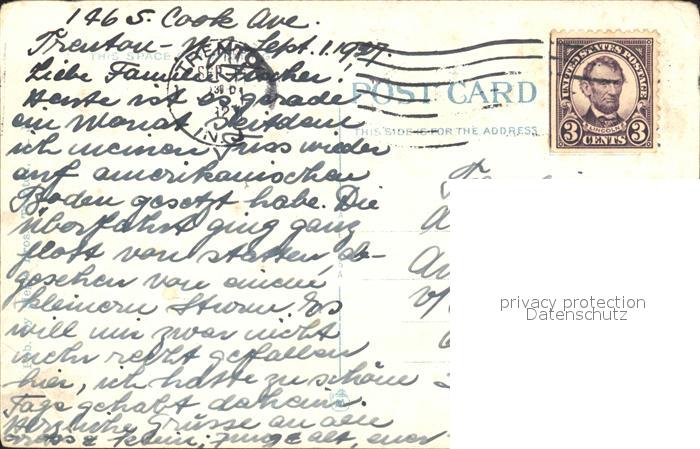 146 S. Cook Ave.
Trenton - N.J. Sept. 1. 1927.
THIS SPACE
Liebe Familie
Heute ist es gerade
ein Monat seitdem
ich meinen Fuss wieder
auf amerikanischen
Boden gesetzt habe. Die
Überfahrt ging ganz
flott von statten, ab-
gesehen von einem
kleinern Sturm. Es
will mir zwar nicht
mehr recht gefallen
hier, ich hatte zu schöne
Tage gehabt daheim.
Herzliche Grüsse an alle
gross & klein, jung & alt, euer
TRENTON
POST CARD
THIS SIDE IS FOR THE ADDRESS
UNITED STATES POSTAGE
LINCOLN
3 CENTS 3
privacy protection
Datenschutz